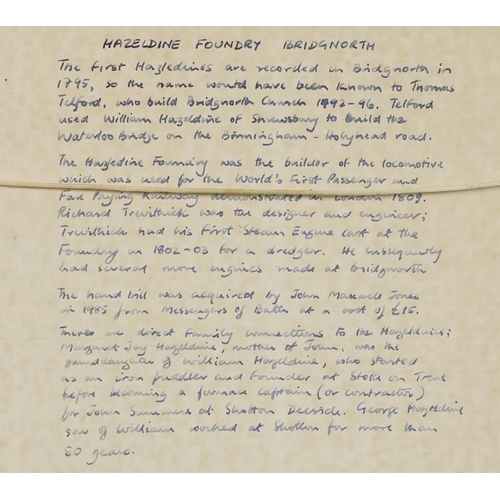 HAZELDINE FOUNDRY BRIDGNORTH
The first Hazledines are recorded in Bridgnorth in
1795, so the name would have been known to Thomas
Telford, who build Bridgnorth Church 1792-96. Telford
used William Hazeldine of Shrewsbury to build the
Waterloo Bridge on the Birmingham - Holyhead road.
The Hazledine Foundry was the builder of the locomotive
which was used for the World's First Passenger and
Fare Paying Railway demonstrated in London 1809.
Richard Trevithick was the designer and engineer;
Trevithick had his First Steam Engine cast at the
Foundry in 1802-03 for a dredger. He subsequently
had several more engines made at Bridgnorth
The hand bill was acquired by John Maxwell Jones
in 1985 from Messengers of Bath at a cost of £15.
There are direct family connections to the Hazeldines;
Margaret Joy Hazeldine, mother of John, was the
granddaughter of William Hazeldine, who started
as an iron puddler and founder at Stoke on Trent
before becoming a furnace captain (or contractor)
for John Summers at Shotton Deeside. George Hazeldine
son of William worked at Shotton for more than
50 years.